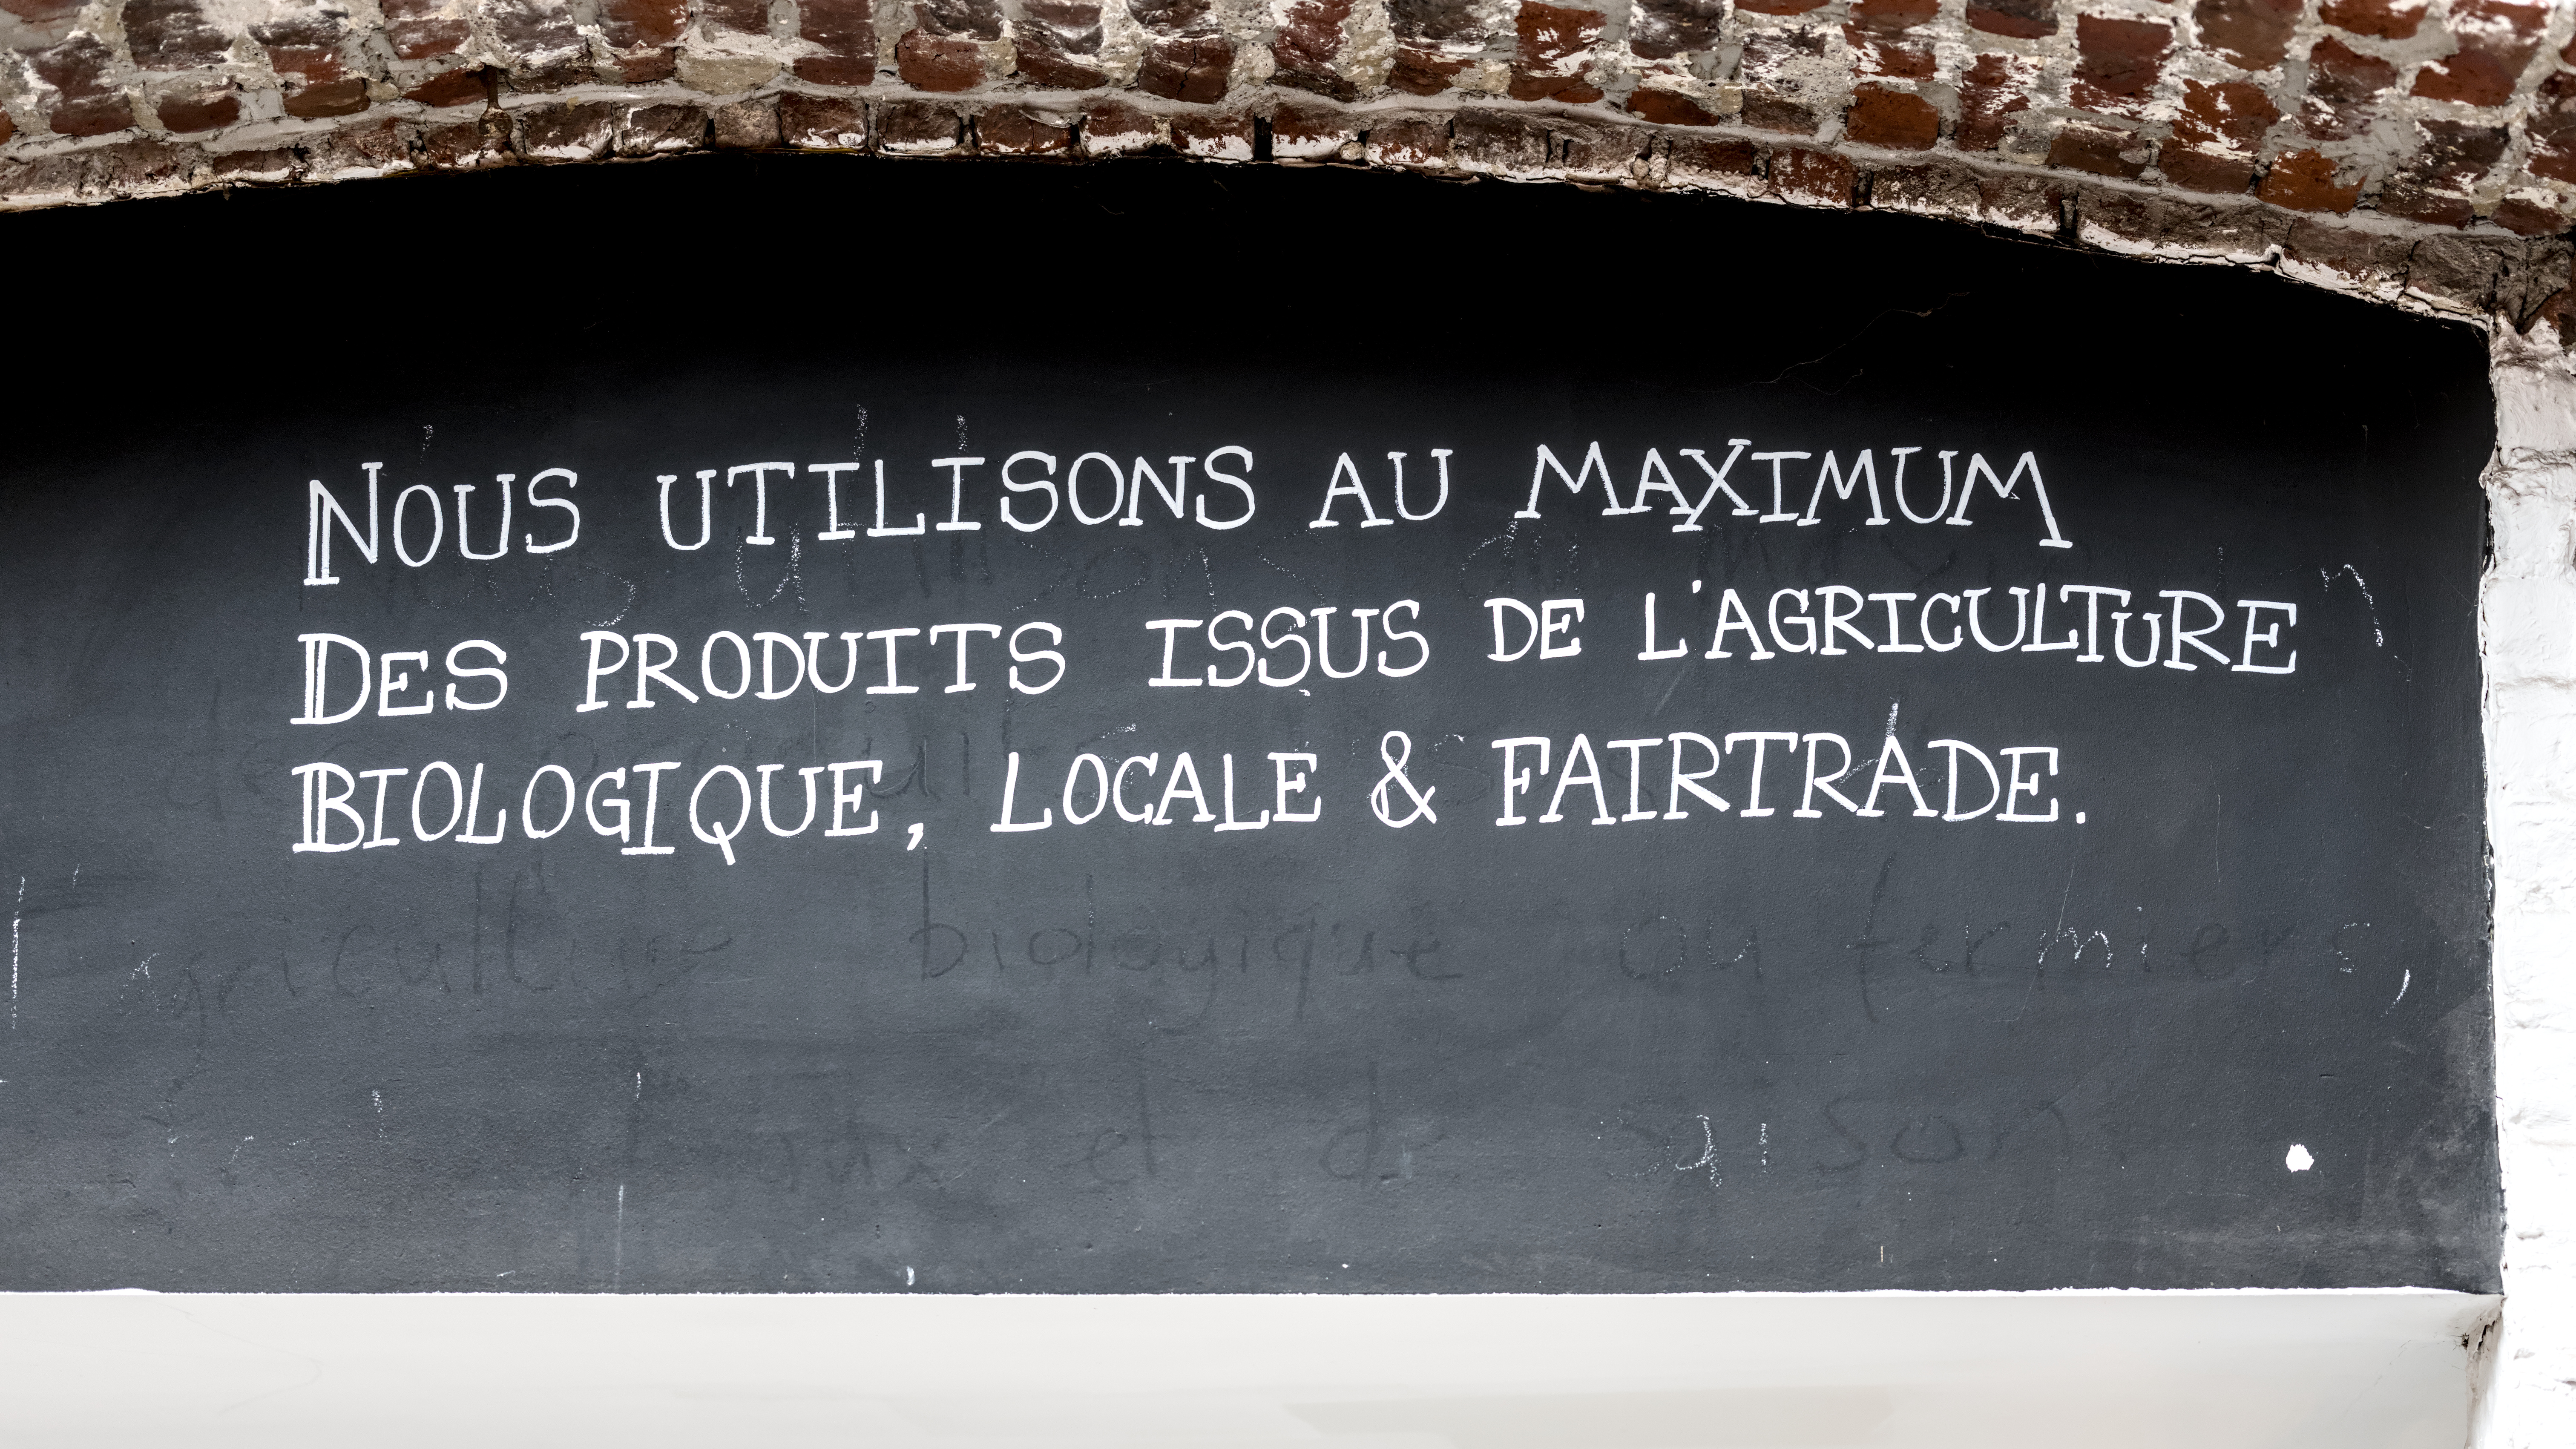 NOUS UTILISONS AU MAXIMUM
DES PRODUITS ISSUS DE L'AGRICULTURE
BIOLOGIQUE, LOCALE & FAIRTRADE.
agriculture biologique ou fermiers,
et de saison.